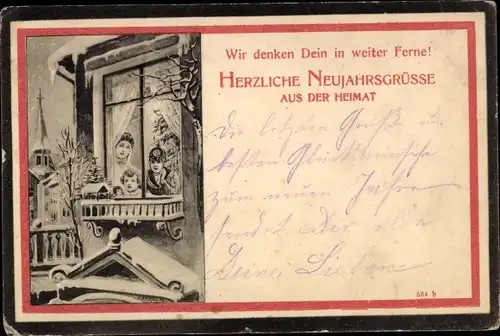 Wir denken Dein in weiter Ferne!
HERZLICHE NEUJAHRSGRÜSSE
AUS DER HEIMAT
Die letzten Grüße u.
besten Glückwünsche
zum neuen Jahre
sendet Dir
Deine Lieben
524 b